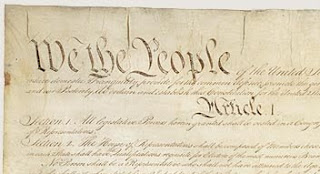 We the People of the United St
insure domestic Tranquility, provide for the common defence, promote the gen
and our Posterity, do ordain and establish this Constitution for the United St
Article I
Section 1. All legislative Powers herein granted shall be vested in a Congress
of Representatives.
Section 2. The House of Representatives shall be composed of Members chosen
in each State shall have Qualifications requisite for Electors of the most numerous Branch
No Person shall be a Representative who shall not have attained to the